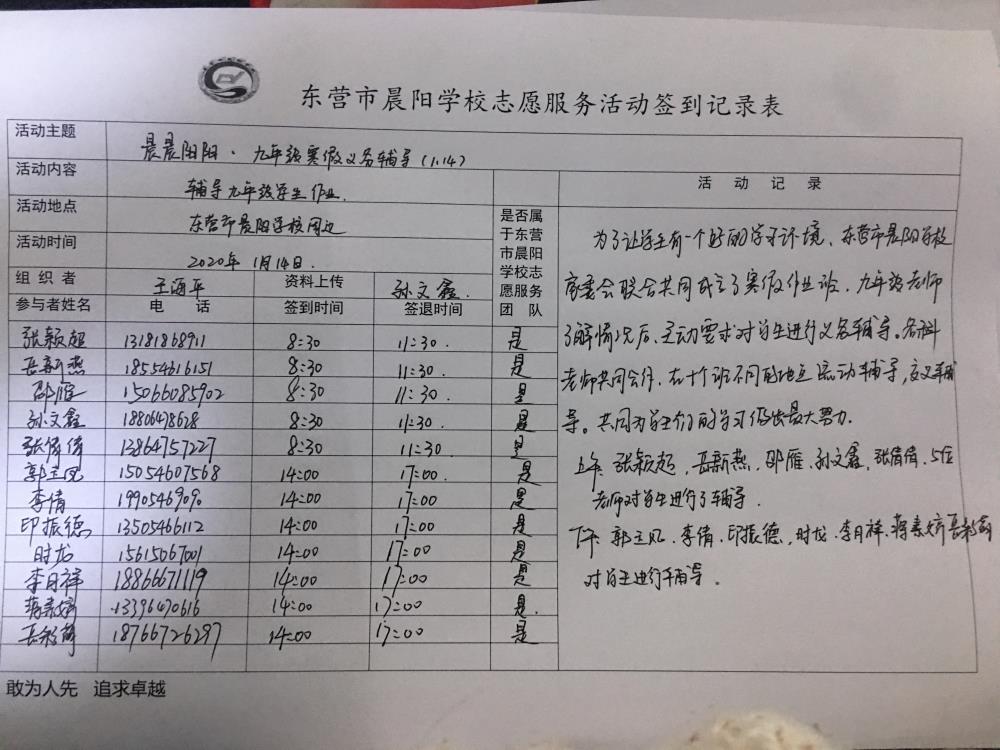 东营市晨阳学校志愿服务活动签到记录表
活动主题 晨晨阳阳·九年级寒假义务辅导(1.14)
活动内容 辅导九年级学生作业.
活动地点 东营市晨阳学校周边
活动时间 2020年1月14日.
组织者 王海平 资料上传 孙文鑫
参与者姓名 电话 签到时间 签退时间 是否属于东营市晨阳学校志愿服务团队
张颖超 13181868911 8:30 11:30. 是
岳新燕 18554616151 8:30 11:30. 是
邵雁 15066085902 8:30 11:30 是
孙文鑫 18806478628 8:30 11:30 是
张倩倩 13864757227 8:30 11:30 是
郭立凤 15054607568 14:00 17:00 是
李倩 19905469090 14:00 17:00 是
印振德 13505466112 14:00 17:00 是
时龙 15615067001 14:00 17:00 是
李月祥 18866671119 14:00 17:00 是
蒋素娇 13396470616 14:00 17:00 是.
岳彩萌 18766726297 14:00 17:00 是
活动记录
为了让学生有一个好的学习环境、东营市晨阳学校
家委会联合共同成立了寒假作业论、九年级老师
了解情况后、主动要求对学生进行义务辅导。各科
老师共同合作、在十个班不同的地点流动辅导,交叉辅
导。共同为学生们的学习做出最大努力.
上午:张颖超、岳新燕,邵雁.孙文鑫,张倩倩.5位
老师对学生进行了辅导.
下午:郭立凤.李倩.印振德,时龙.李月祥.蒋素娇 岳彩萌
对学生进行辅导。
敢为人先 追求卓越